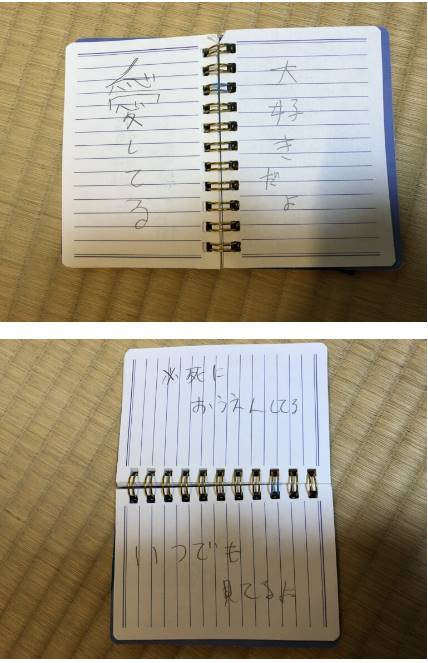 大好きだよ
愛してる
必死に
おうえんしてる
いつでも
見てる